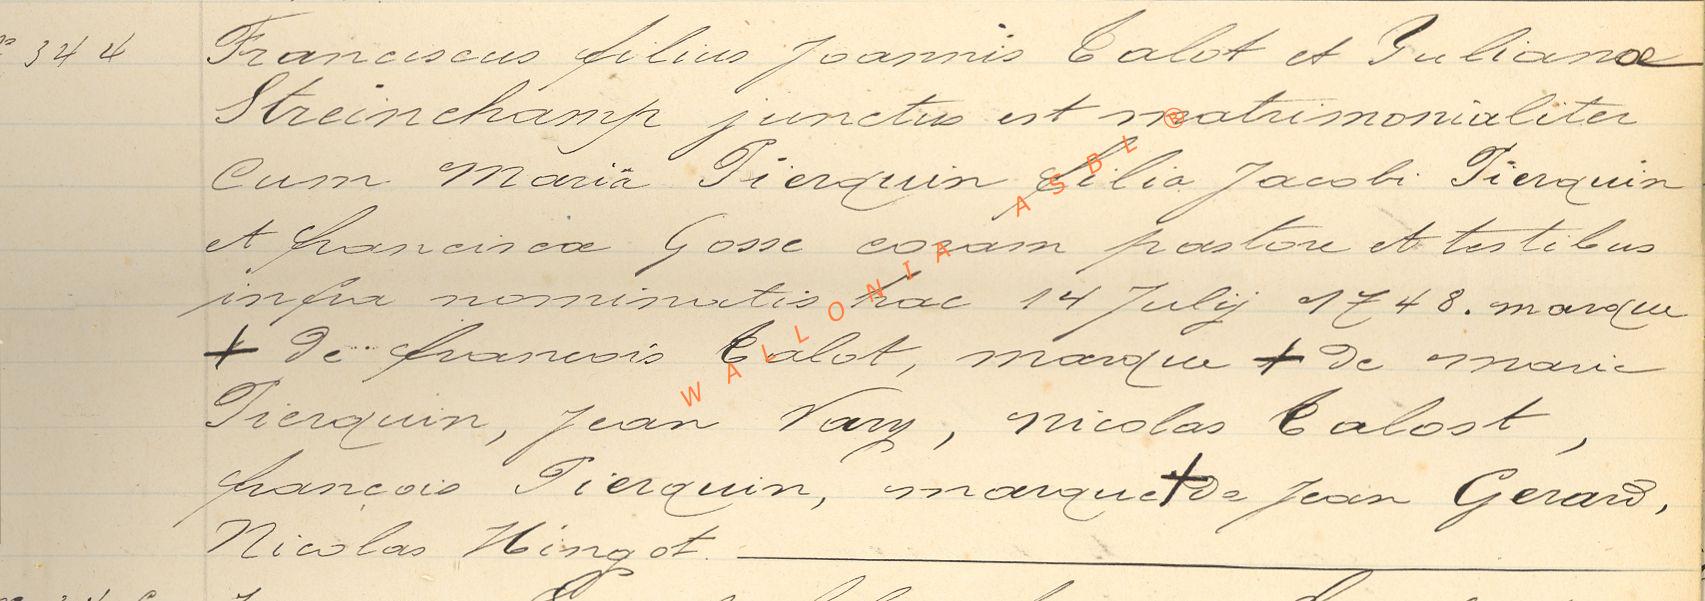 n° 344 Franciscus filius Joannis Calot et Julianæ
Streinchamp junctus est matrimonialiter
cum Mariâ Pierquin filia Jacobi Pierquin
et franciscæ Gosse coram pastore et testibus
infra nominatis hac 14 Julij 1748. marque
+ de francois Calot, marque + de marie
Pierquin, Jean Vary, Nicolas Calost,
françois Pierquin, marque + de Jean Gerard,
Nicolas Hingot.
WALLONIA ASBL ®